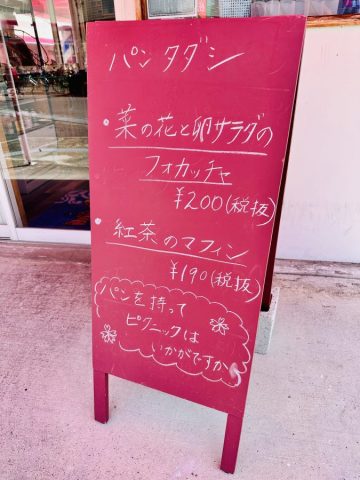 パン タグシ
・菜の花と卵サラダの
フォカッチャ
¥200(税抜)
・紅茶のマフィン
¥190(税抜)
パンを持って
ピクニックは
いかがですか